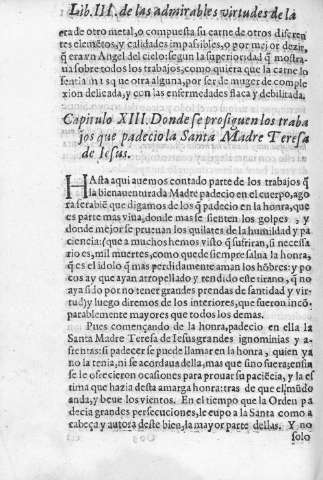 Lib. III. de las admirables virtudes de la
era de otro metal, o compuesta su carne de otros diferen
tes elemẽtos, y calidades impasibles, o por mejor dezir,
q̃ era vn Angel del cielo: segun la superioridad q̃ mostra
ua sobre todos los trabajos, como quiera que la carne lo
sentia mas que otra alguna, por ser de muger de comple
xion delicada, y con las enfermedades flaca y debilitada.
Capitulo XIII. Donde se prosiguen los traba
jos que padecio la Santa Madre Teresa
de Iesus.
HAsta aqui auemos contado parte de los trabajos q̃
la bienauenturada Madre padecio en el cuerpo, ago
ra serabiẽ que digamos de los q̃ padecio en la honra, que
es parte mas viua, donde mas se sienten los golpes, y
donde mejor se prueuan los quilates de la humildad y pa
ciencia: (que a muchos hemos visto q̃ sufriran, si necessa
rio es, mil muertes, como quede siempre salua la honra,
q̃ es el idolo q̃ mas perdidamente aman los hõbres: y po
cos ay que ayan atropellado y rendido este tirano, q̃ no
aya sido por no tener grandes prendas de santidad y vir
tud) y luego diremos de los interiores, que fueron incõ-
parablemente mayores que todos los demas.
Pues començando de la honra, padecio en ella la
Santa Madre Teresa de Iesus grandes ignominias y a-
frentas: si padecer se puede llamar en la honra, quien ya
no la tenia, ni se acordaua della, mas que sino fuera; ensin
se le ofrecieron ocasiones para prouar su paciẽcia, y la es
tima que hazia desta amarga honra: tras de que el mũdo
anda, y beue los vientos. En el tiempo que la Orden pa
decia grandes persecuciones, le cupo a la Santa como a
cabeça y autora deste bien, la mayor parte dellas. Y no
solo